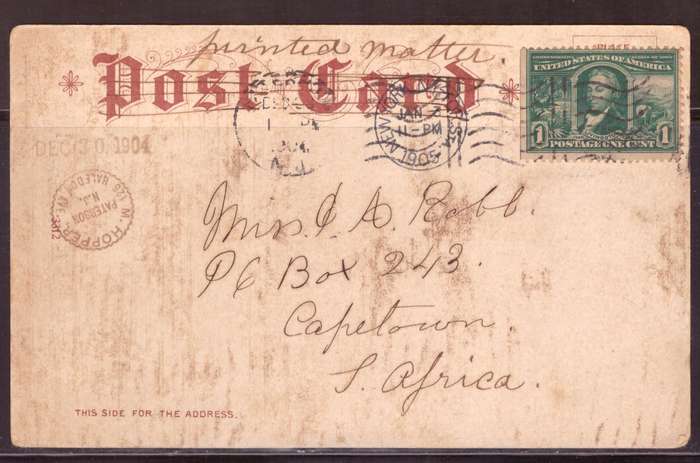 printed matter.
Post Card
PLACE
UNITED STATES OF AMERICA
1 POSTAGE ONE CENT 1
JAN 2
11-PM
1905
NEW
DEC 30 1904
1904
N.J.
M. HOPPER
PATERSON
N.J.
HALEDON AVE.
Miss. J. A. Robb.
PO Box 243.
Capetown.
S. Africa.
THIS SIDE FOR THE ADDRESS.